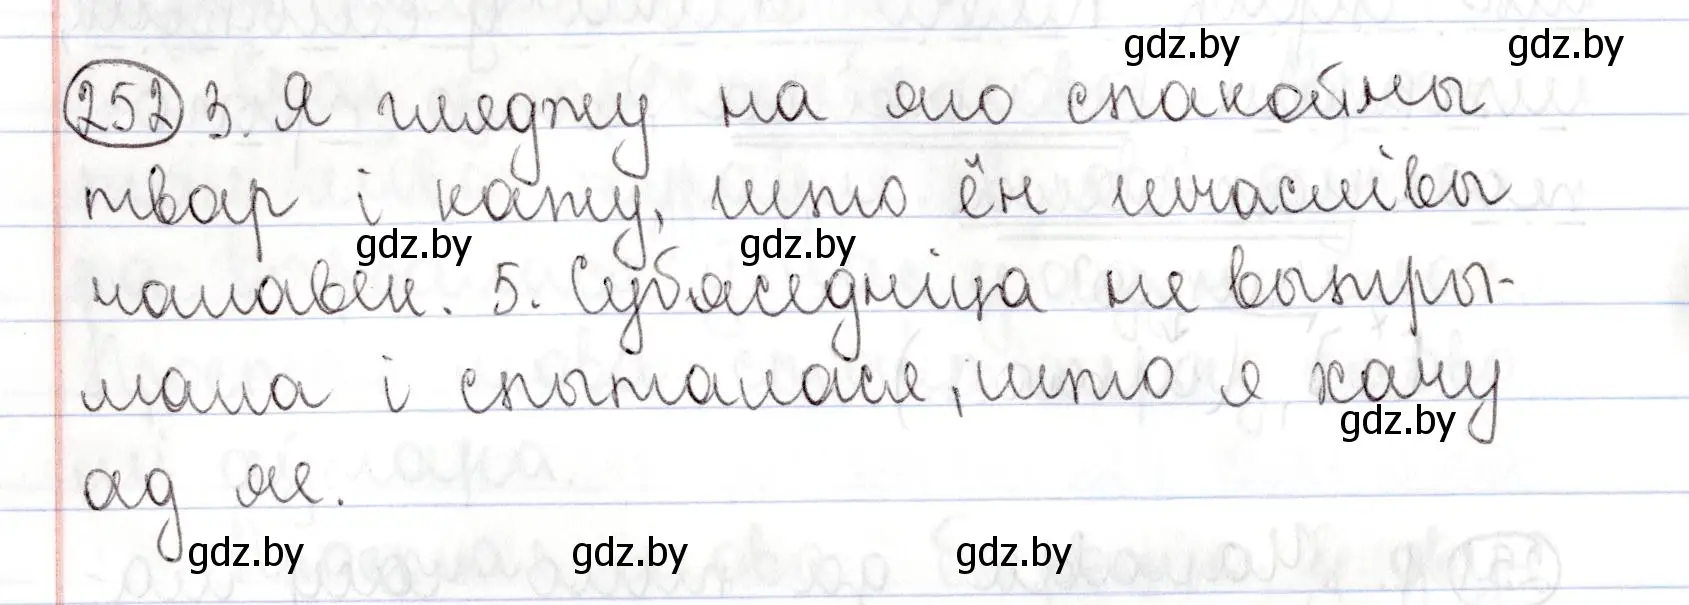 gdz.by gdz.by
252 3. Я гляджу на яго спакойны
твар і кажу, што ён шчаслівы
gdz.by gdz.by
чалавек. 5. Субяседніца не вытры-
мала і спыталася, што я хачу
gdz.by
ад яе.
gdz.by gdz.by gdz.by gdz.by